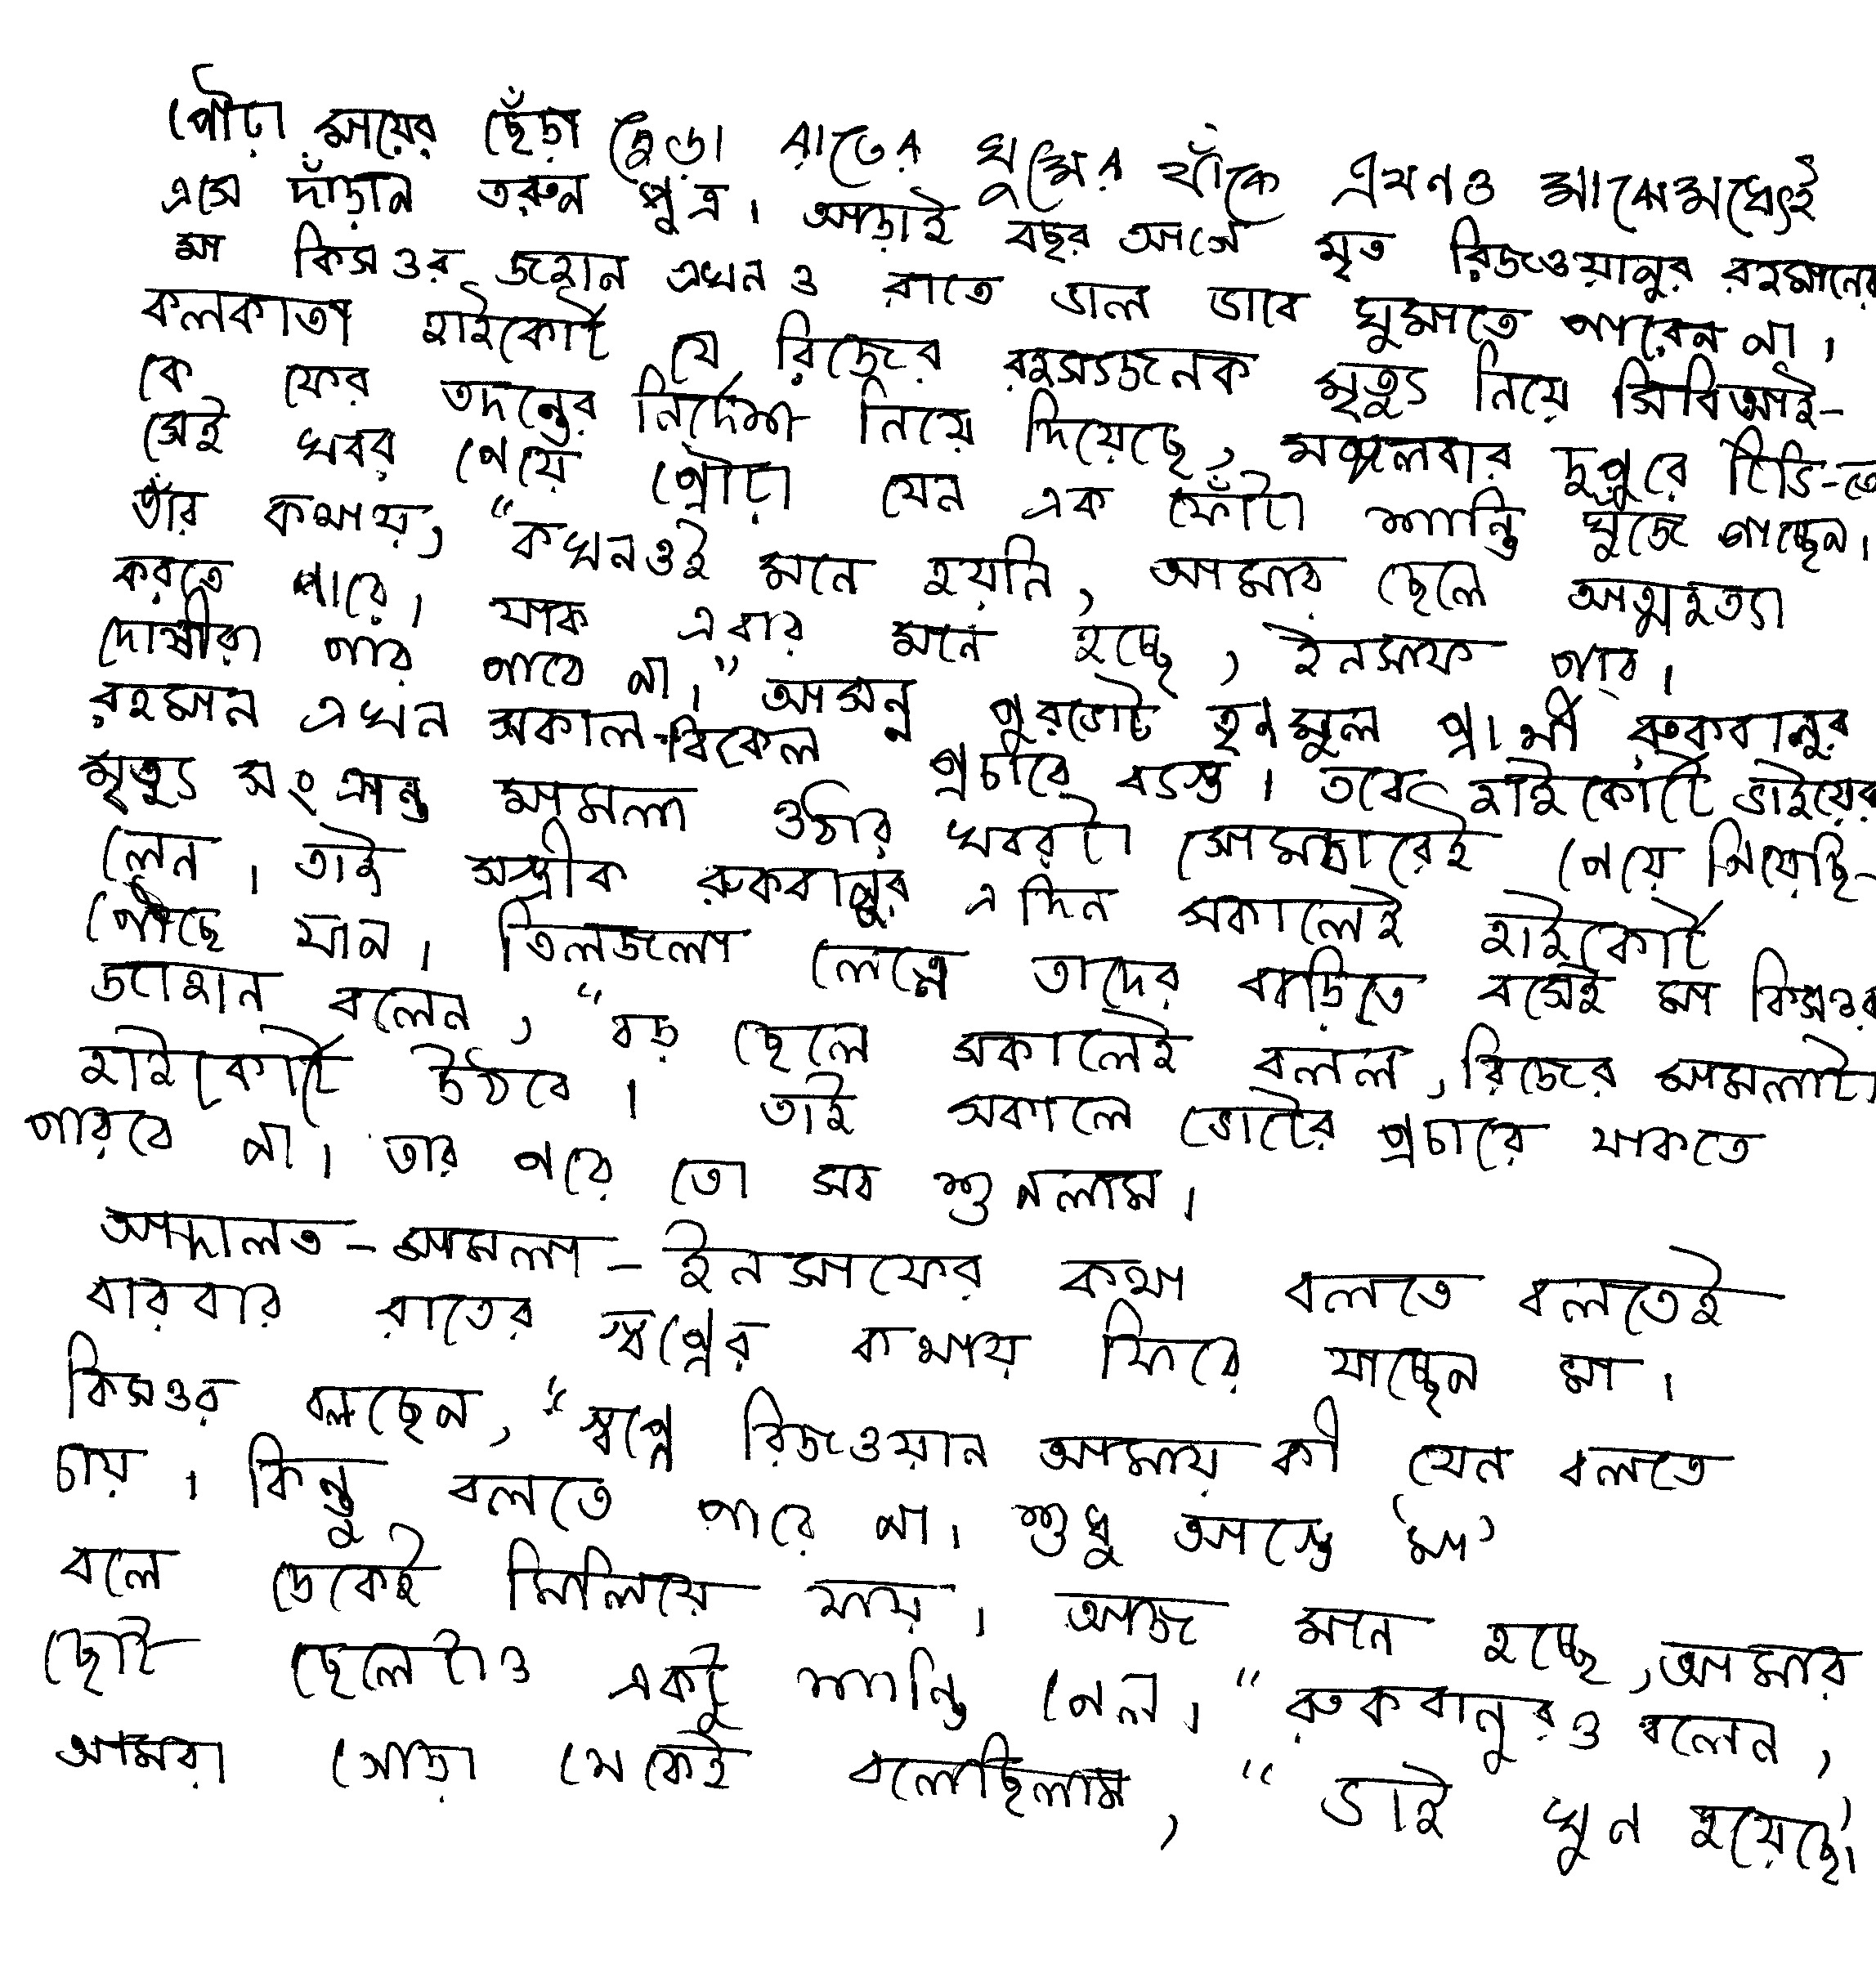 পৌঢ়া মায়ের ছেঁড়া ছেড়া রাতের ঘুমের ফাঁকে এখনও মাঝেমধ্যেই
এসে দাঁড়ান তরুন পুত্র। আড়াই বছর আগে মৃত রিজওয়ানুর রহমানের
মা কিসওর জহান এখনও রাতে ভাল ভাবে ঘুমাতে পারেন না।
কলকাতা হাইকোর্ট যে রিজের রহস্যজনক মৃত্যু নিয়ে সিবিআই-
কে ফের তদন্তের নির্দেশ নিয়ে দিয়েছে, মঙ্গলবার দুপুরে টিভি-তে
সেই খবর পেয়ে প্রৌঢ়া যেন এক ফোঁটা শান্তি খুঁজে পাচ্ছেন।
তাঁর কথায়, “কখনওই মনে হয়নি, আমার ছেলে আত্মহত্যা
করতে পারে। যাক এবার মনে হচ্ছে, ইনসাফ পাব।
দোষীরা পার পাবে না।” আসন্ন পুরভোটে তৃণমূল প্রার্থী রুকবানুর
রহমান এখন সকাল-বিকেল প্রচারে ব্যস্ত। তবে হাইকোর্টে ভাইয়ের
মৃত্যু সংক্রান্ত মামলা ওঠার খবরটা সোমবারেই পেয়ে গিয়েছি-
লেন। তাই সস্ত্রীক রুকবানুর এ দিন সকালেই হাইকোর্টে
পৌঁছে যান। তিলজলা লেনে তাদের বাড়িতে বসেই মা কিসওর
জাহান বলেন, “বড় ছেলে সকালেই বলল, রিজের মামলাটা
হাইকোর্টে উঠবে। তাই সকালে ভোটের প্রচারে থাকতে
পারবে না। তার পরে তো সব শুনলাম।
আদালত-মামলা-ইনসাফের কথা বলতে বলতেই
বারবার রাতের স্বপ্নের কথায় ফিরে যাচ্ছেন মা।
কিসওর বলছেন, “স্বপ্নে রিজওয়ান আমায় কী যেন বলতে
চায়। কিন্তু বলতে পারে না। শুধু আস্তে ‘মা’
বলে ডেকেই মিলিয়ে যায়। আজ মনে হচ্ছে, আমার
ছোট ছেলেটাও একটু শান্তি পেল।“ রুকবানুরও বলেন,
আমরা গোড়া থেকেই বলেছিলাম, “ভাই খুন হয়েছে।